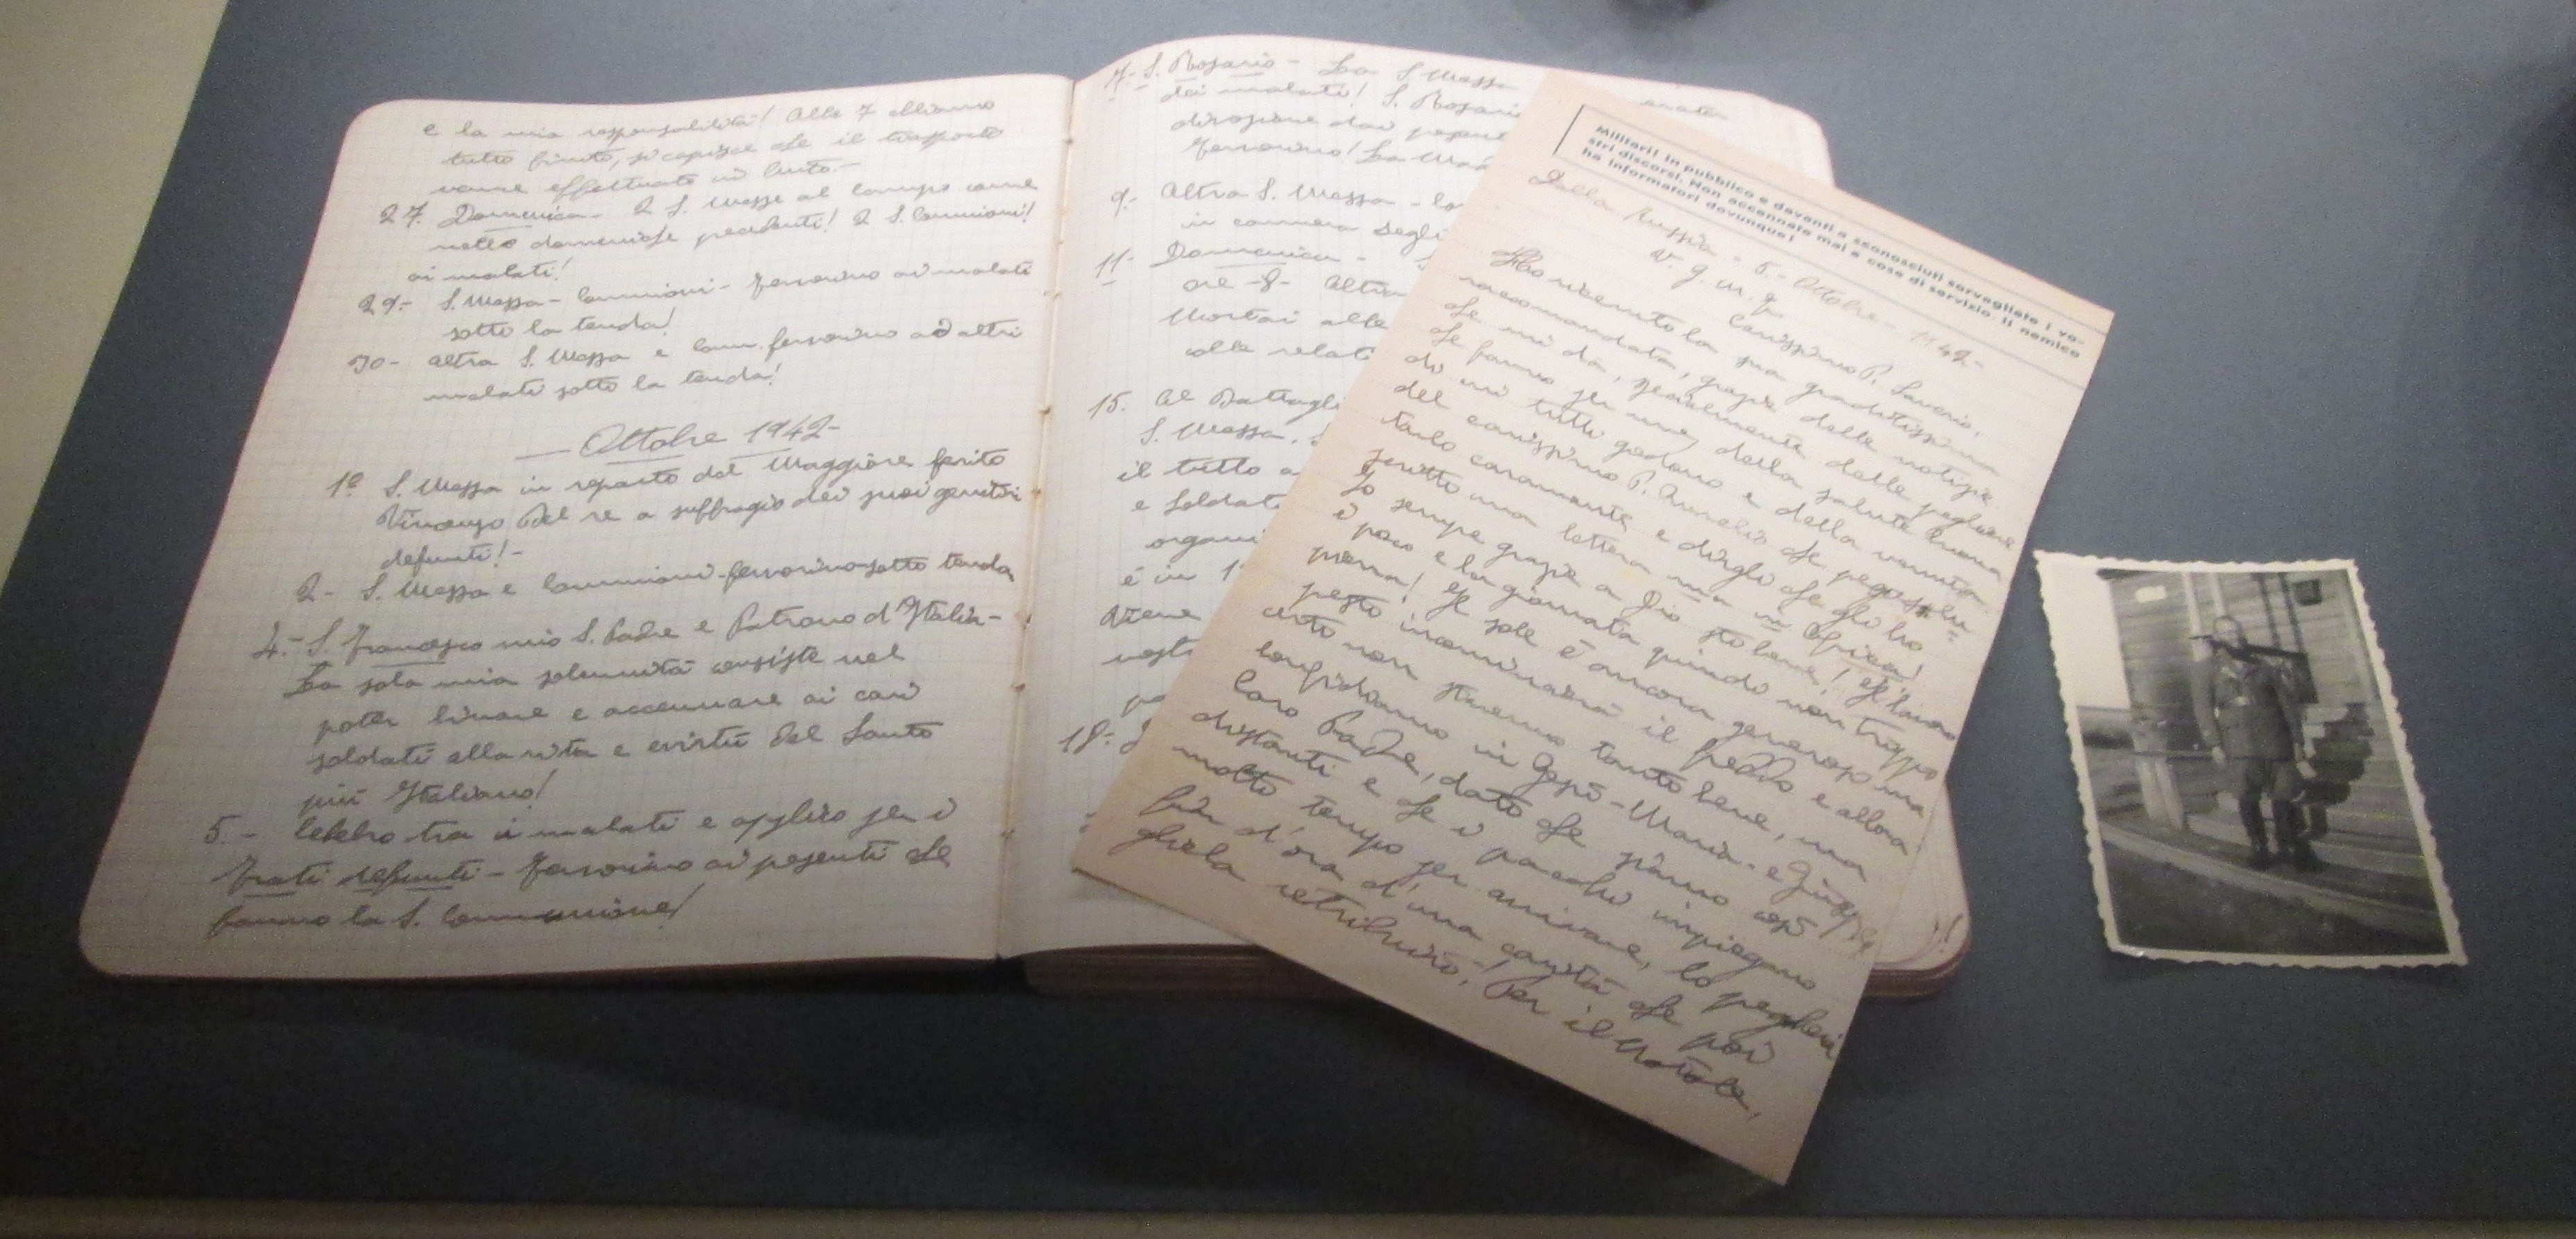 e la mia responsabilità! Alle 7 abbiamo
tutto finito, si capisce che il trasporto
venne effettuato in
27. Domenica - 2 S. Messe al Campo come
nelle domeniche precedenti! 2 S. Comunioni!
ai malati!
29.- S. Messa - Comunioni - Fervorino ai malati
sotto la tenda!
30- Altra S. Messa e Com. fervorino ad altri
malati sotto la tenda!
— Ottobre 1942-
1º S. Messa in reparto del Maggiore ferito
Vincenzo Del re a suffragio dei suoi genitori
defunti!-
2- S. Messa e Comunioni-fervorino sotto tenda
4.- S. Francesco mio S. Padre e Patrono d'Italia-
La sola mia solennità consiste nel
poter binare e accennare ai cari
soldati alla vita e virtù del Santo
più Italiano!
5.- Celebro tra i malati e applico per i
Frati defunti - Fervorino ai presenti che
fanno la S. Comunione!
7.- S. Rosario - La S. Messa
dei malati! S. Rosari
dai
fervorino! La
9.- Altra S. Messa -
in camera degli
11- Domenica -
ore -8- Altra
Mortai alle
colle relati
15. Al Battagli
S. Messa.
il tutto a
e soldat
organi
è in 1
Viene
nost
po
18-
Militari! In pubblico e davanti a sconosciuti sorvegliate i vo-
stri discorsi. Non accennate mai a cose di servizio. Il nemico
ha informatori dovunque!
Dalla Russia - 5 - Ottobre - 1942-
V. G. M. G.
Carissimo P. Saverio,
Ho ricevuto la sua graditissima
raccomandata, grazie delle notizie
che mi dà, specialmente delle preghiere
che fanno per me, della salute buona
di cui tutti godono e della venuta
del carissimo P. Aurelio che prego salu=
tarlo caramente e dirgli che gli ho
scritto una lettera ma in Africa!
Io sempre grazie a Dio sto bene! Il lavoro
è poco e la giornata quindi non troppo
piena! Il sole è ancora generoso ma
presto incomincerà il freddo e allora
certo non staremo tanto bene, ma
confidiamo in Gesù - Maria - e Giuseppe
Caro Padre, dato che siamo così
distanti e che i pacchi impiegano
molto tempo per arrivare, lo pregherei
fin d'ora d'una carità che poi
gliela retribuirò! Per il Natale,